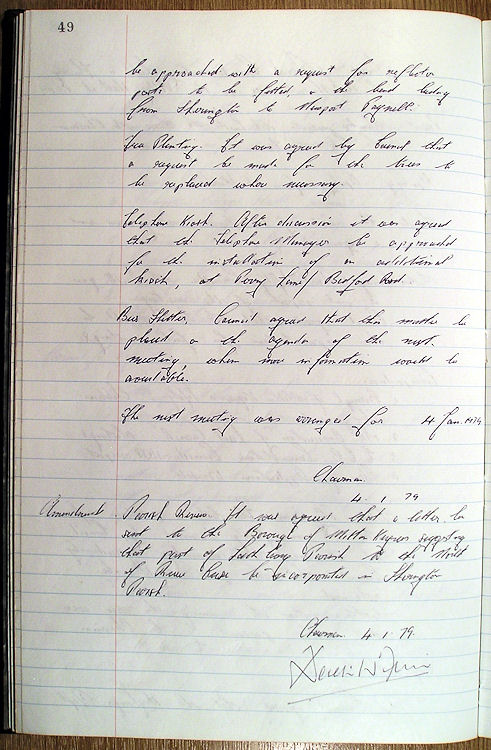 49
be approached with a request for reflector
posts to be fitted on the bend leading
from Sherington to Newport Pagnell.
Tree Planting. It was agreed by Council that
a request be made for the trees to
be replaced where necessary.
Telephone Kiosk. After discussion it was agreed
that the Telephone Manager be approached
for the installation of an additional
kiosk, at Perry Lane/ Bedford Road.
Bus Shelter. Council agreed that this matter be
placed on the agenda of the next
meeting, when more information would be
available.
The next meeting was arranged for 4 Jan. 1979
Chairman.
4. 1. 79
Amendment. Parish Review. It was agreed that a letter be
sent to the Borough of Milton Keynes suggesting
that part of Lathbury Parish to the North
of River Ouse be incorporated in Sherington
Parish.
Chairman. 4. 1. 79.